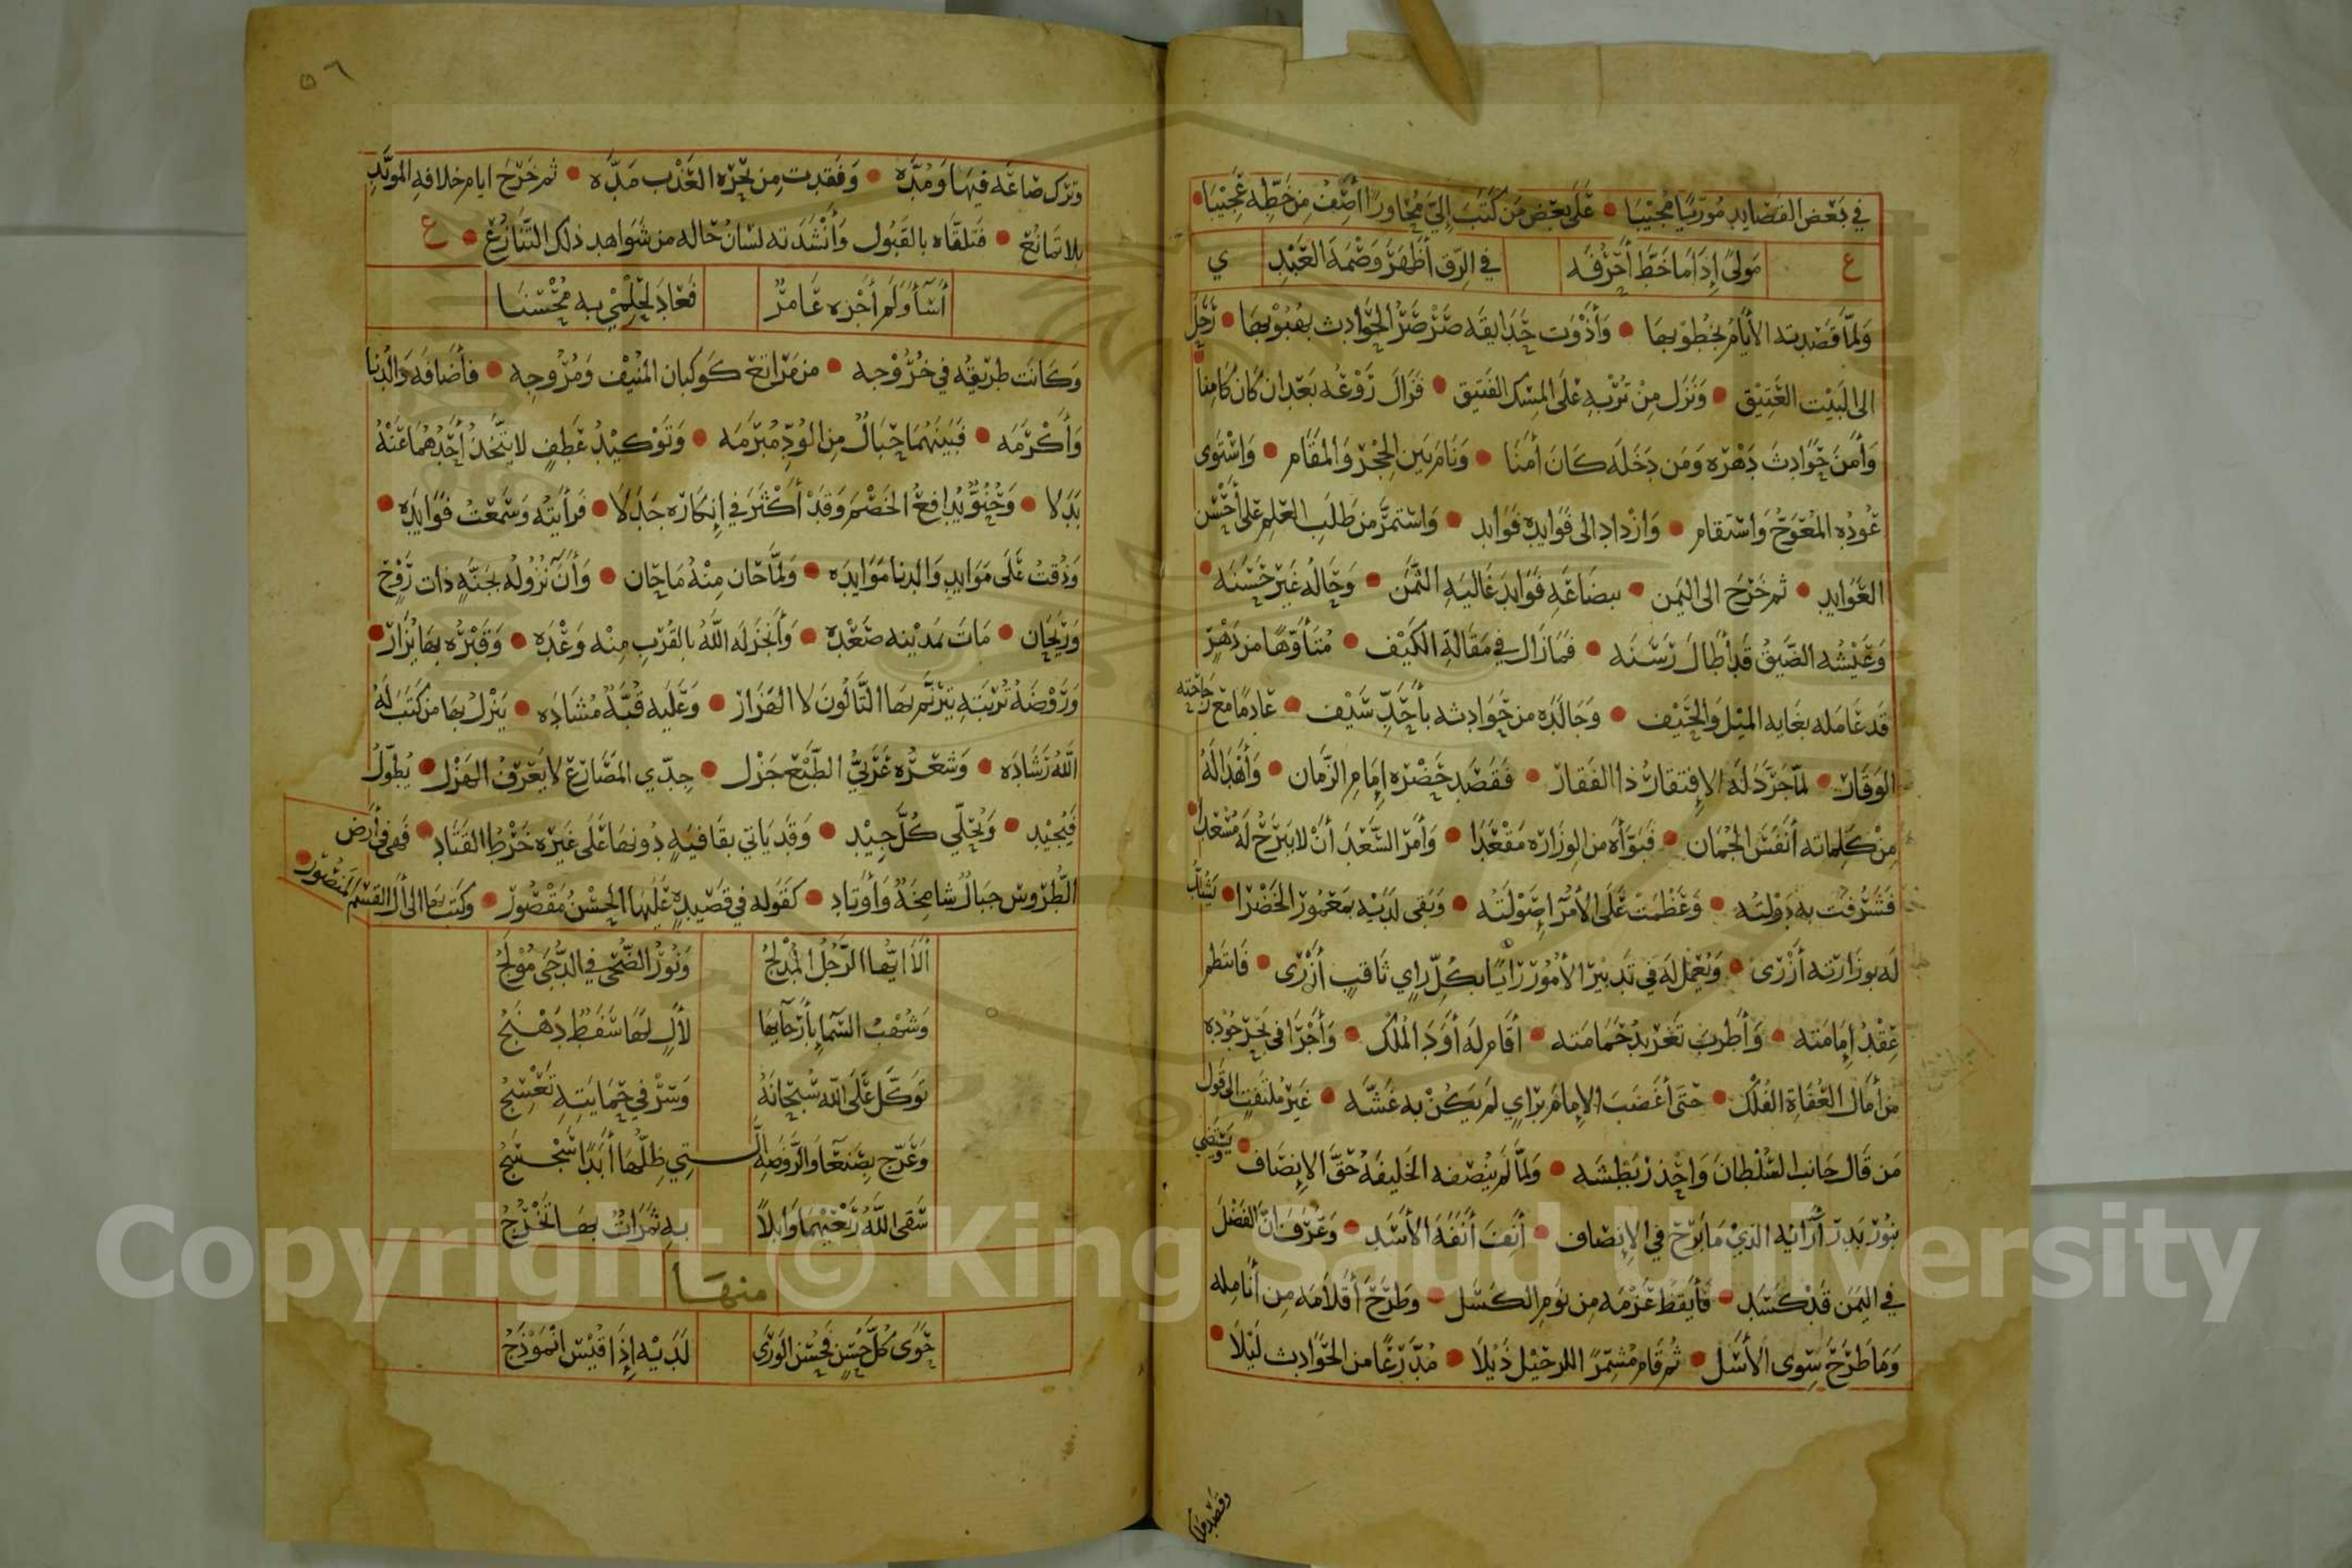 في بعض القصايد مُورّيًا مجيبا • على بعض من كتب إليّ مجاورًا أصف من خطّه عجيبا •
ع مولىً إذا ما خط أحرفه في الرق أظهر وصمة العبد ي
ولما قصدته الأيام بخطوبها • وأذوت حدايقه صرصر الحوادث بهبوبها • رحل
الى البيت العتيق • ونزل من تربه على المسك الفتيق • فزال روعه بعد ان كان كامنا •
وأمن حوادث دهره ومن دخله كان أمنا • ونام بين الحجر والمقام • واستوى
عوده المعوج واستقام • وازداد الى فوايده فوايد • واستمر من طلب العلم على أحسن
العوايد • ثم خرج الى اليمن • ببضاعه فوايد غاليه الثمن • وحاله غير حسنه •
وعيشه الضيق قد أطال رسنه • فما زال في مقالة الكيف • متأوهًا من دهرٍ
قد عامله بغايه الميل والحيف • وجالده من حوادثه بأحد سيف • عادمًا مع راحته
الوقار • لما جرد له الإفتقار ذا الفقار • فقصد حضره إمام الزمان • وأهدا له
من كلماته أنفس الجمان • فبوأه من الوزاره مقعدا • وأمر السعد أن لا يبرح له مسعدا •
فشرفت به دولته • وعظمت على الأمرا صولته • وبقى لديه بمعمور الخضرا • يشد
له بوزارته أزرى • ويعمل له في تدبير الأمور رائيًا بكل راي ثاقب أزرى • فانتظم
عقد إمامته • وأطرب تغريد حمامته • أقام له أود الملك • وأجرا في بحر جوده
من أمال العفاة الفلك • حتى أغضب الإمام براي لم يكن به غشه • غير ملتفت الى قول
من قال جانب السلطان واحذر بطشه • ولما لم ينصفه الخليفه حق الإنصاف • ويستضي
بنور بدر أرائه الذي ما برح في الإنصاف • أنف أنفه الأسد • وعرف ان الفضل
في اليمن قد كسد • فأيقظ عزمه من نوم الكسل • وطرح أقلامه من أنامله
وما طرح سوى الأسل • ثم قام مشمرًا اللرحيل ذيلا • مدرعًا من الحوادث ليلا •
وقصد
٥٦
وترك صاعه فيها ومده • وفقدت من بحره العذب مده • ثم خرج ايام خلافه المويد
بلا تمانع • فتلقاه بالقبول وأنشدته لسان حاله من شواهد ذلك التنازع • ع
أسأ ولم أجزه عامرٌ فعاد لحلمي به محسنا
وكانت طريقه في خروجه • من مراتع كوكبان المنيف ومروجه • فأضافه والدنا
وأكرمه • فبينهما حبالٌ من الود مبرمه • وتوكيد عطفٍ لا يتخذ أحدهما عنه
بدلا • وحنوٌّ يدافع الخصم وقد أكثر في إنكاره جدلا • فرأيته وسمعت فوايده •
وذقت على موايد والدنا موايده • ولما حان منه ما حان • وأن نزوله بجنةٍ ذات روح
وريحان • مات بمدينه صعده • وأنجز له الله بالقرب منه وعده • وقبره بها يزار •
وروضة تربته يترنم بها التالون لا الهزار • وعليه قبة مشاده • ينزل بها من كتب له
الله رشاده • وشعره عربي الطبع جزل • جدي المصارع لا يعرف الهزل • يطول
فيجيد • ويحلي كل جيد • وقد ياتي بقافيةٍ دونها على غيره خرط القتاد • فهى في أرض
الطروس جبالٌ شامخةٌ وأوتاد • كقوله في قصيدهٍ عليها الحسن مقصور • وكتب بها الى أل القسم المنصور •
ألا ايها الرجل المدلج ونور الضحى في الدجى مولج
وشهب السما بأرجايها لألٍ لها سفط دهنج
توكل على الله سبحانه وسر في حمايته تعسج
وعرج بصنعا والروضه الـتي ظلها أبدًا سجسج
سقى الله ربعيهما وابلًا به ثمراتٌ بها تخرج
منها
حوى كل حسنٍ فحسن الورى لديه إذا قيس انموذج
Copyright © King Saud University